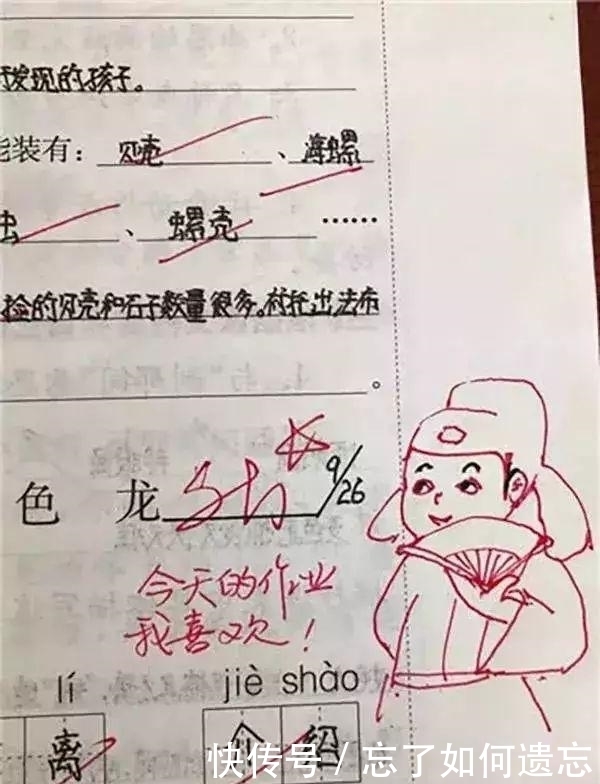 发现的孩子。
装有：贝壳、海螺
虫、螺壳……
捡的贝壳和石子数量很多。衬托出法布
。
色 龙 9/26
今天的作业
我喜欢！
lí jiè shào
离 介绍
快传号 / 忘了如何遗忘